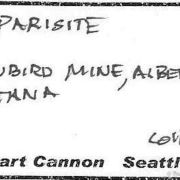 PARISITE
UBIRD MINE, ALBE
TANA
COU
art Cannon Seattl